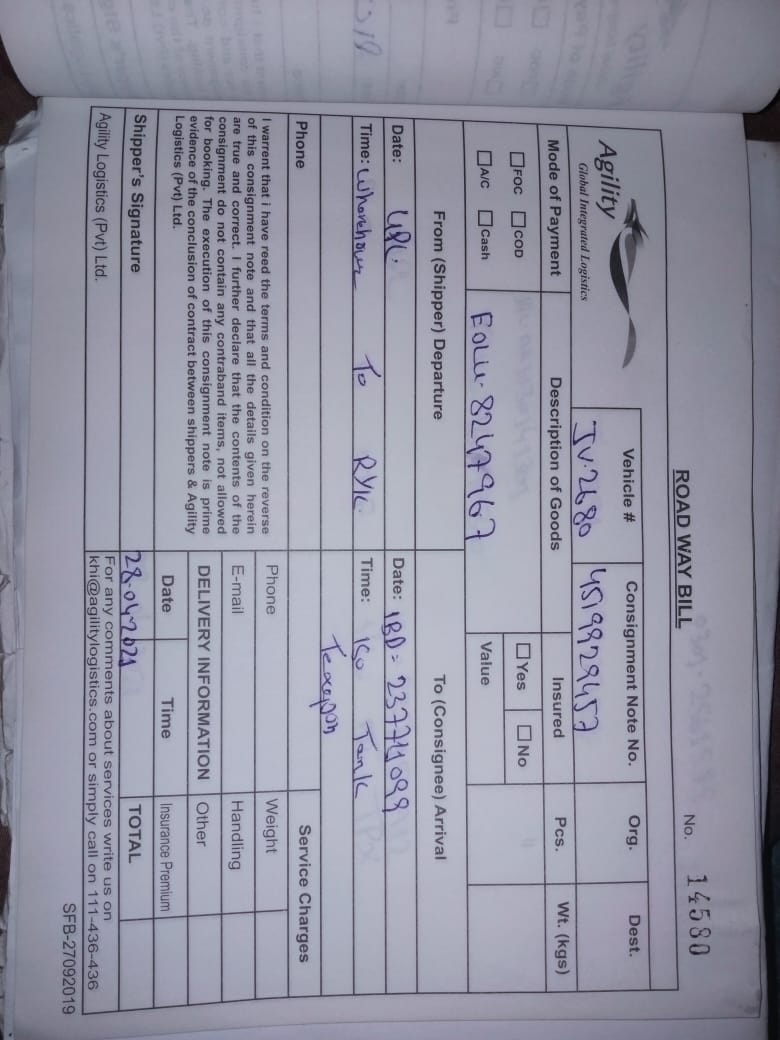 ROAD WAY BILL
No. 14580
Agility
Global Integrated Logistics
Vehicle # Consignment Note No. Org. Dest.
JV-2680 4519929457
Mode of Payment Description of Goods Insured Pcs. Wt. (kgs)
FOC COD Yes No
A/C Cash EOLU-8247967 Value
From (Shipper) Departure To (Consignee) Arrival
Date: UPL. Date: IBD = 237711099
Time: To RYK Time: ISO Tank
Phone Service Charges
I warrent that i have reed the terms and condition on the reverse
of this consignment note and that all the details given herein
are true and correct. I further declare that the contents of the
consignment do not contain any contraband items, not allowed
for booking. The execution of this consignment note is prime
evidence of the conclusion of contract between shippers & Agility
Logistics (Pvt) Ltd.
Phone Weight
E-mail Handling
DELIVERY INFORMATION Other
Date Time Insurance Premium
Shipper's Signature 28-04-2021 TOTAL
Agility Logistics (Pvt) Ltd.
For any comments about services write us on
khi@agilitylogistics.com or simply call on 111-436-436
SFB-27092019